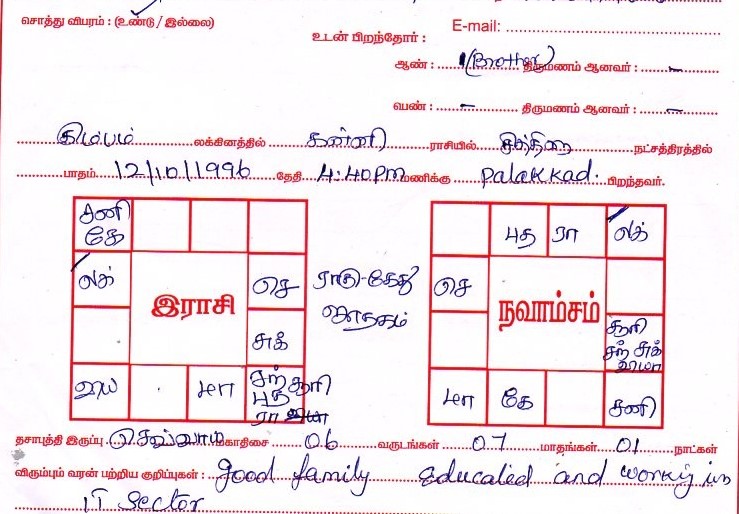 சொத்து விபரம் : (உண்டு / இல்லை)
E-mail:
உடன் பிறந்தோர் :
ஆண் : 1 (Brother) திருமணம் ஆனவர் : –
பெண் : – திருமணம் ஆனவர் : –
கும்பம் லக்கினத்தில் கன்னி ராசியில் சித்திரை நட்சத்திரத்தில்
பாதம் 12/10/1996 தேதி 4:40PM மணிக்கு Palakkad. பிறந்தவர்.
சனி
கே
லக்
செ
சுக்
குரு
மா
சந் சூரி
புத
ரா
இராசி
ராகு-கேது
ஜாதகம்
புத ரா லக்
செ
சூரி
சந் சுக்
மா கே சனி
நவாம்சம்
தசாபுத்தி இருப்பு செவ்வாய் மகாதிசை 06 வருடங்கள் 07 மாதங்கள் 01 நாட்கள்
விரும்பும் வரன் பற்றிய குறிப்புகள் : good family educated and working in
IT Sector